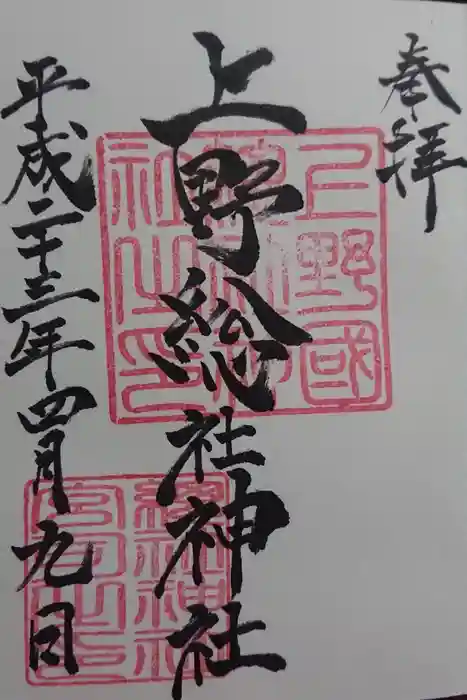 奉拝
上野総社神社
平成二十三年四月九日
上野國
総社神社
社之印
総社神社
宮司之印